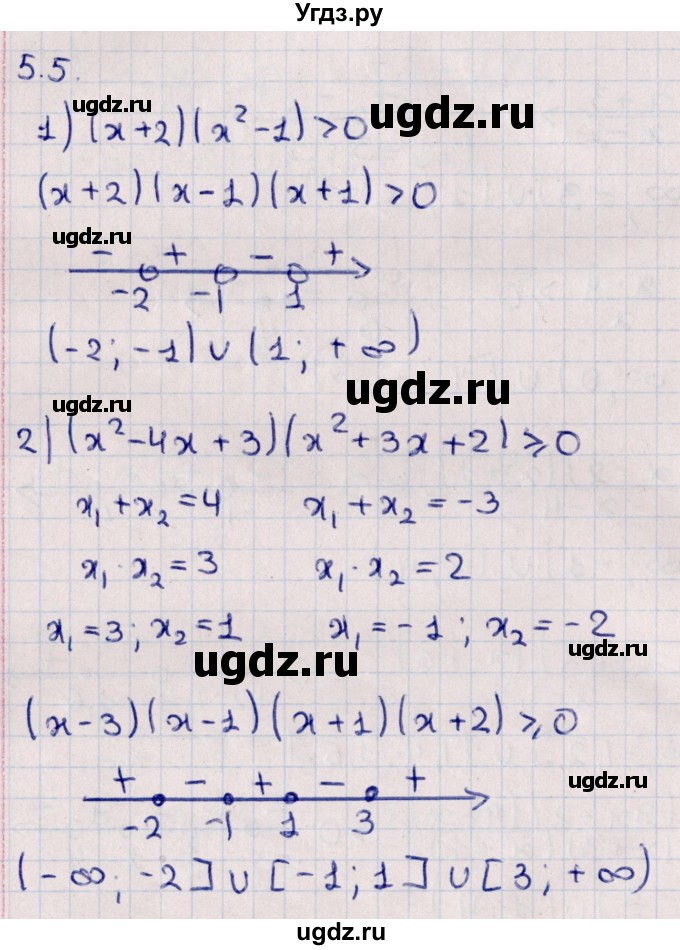 Угдз.ру
5.5.
ugdz.ru ugdz.ru
1) (x+2)(x²-1)>0
(x+2)(x-1)(x+1)>0
ugdz.ru
- + - +
-2 -1 1
(-2; -1) ∪ (1; +∞)
ugdz.ru
ugdz.ru
2) (x²-4x+3)(x²+3x+2)⩾0
x₁+x₂=4 x₁+x₂=-3
x₁·x₂=3 x₁·x₂=2
x₁=3; x₂=1 x₁=-1; x₂=-2
ugdz.ru ugdz.ru
(x-3)(x-1)(x+1)(x+2)⩾0
+ - + - + ugdz.ru
-2 -1 1 3
(-∞; -2] ∪ [-1; 1] ∪ [3; +∞)
ugdz.ru ugdz.ru